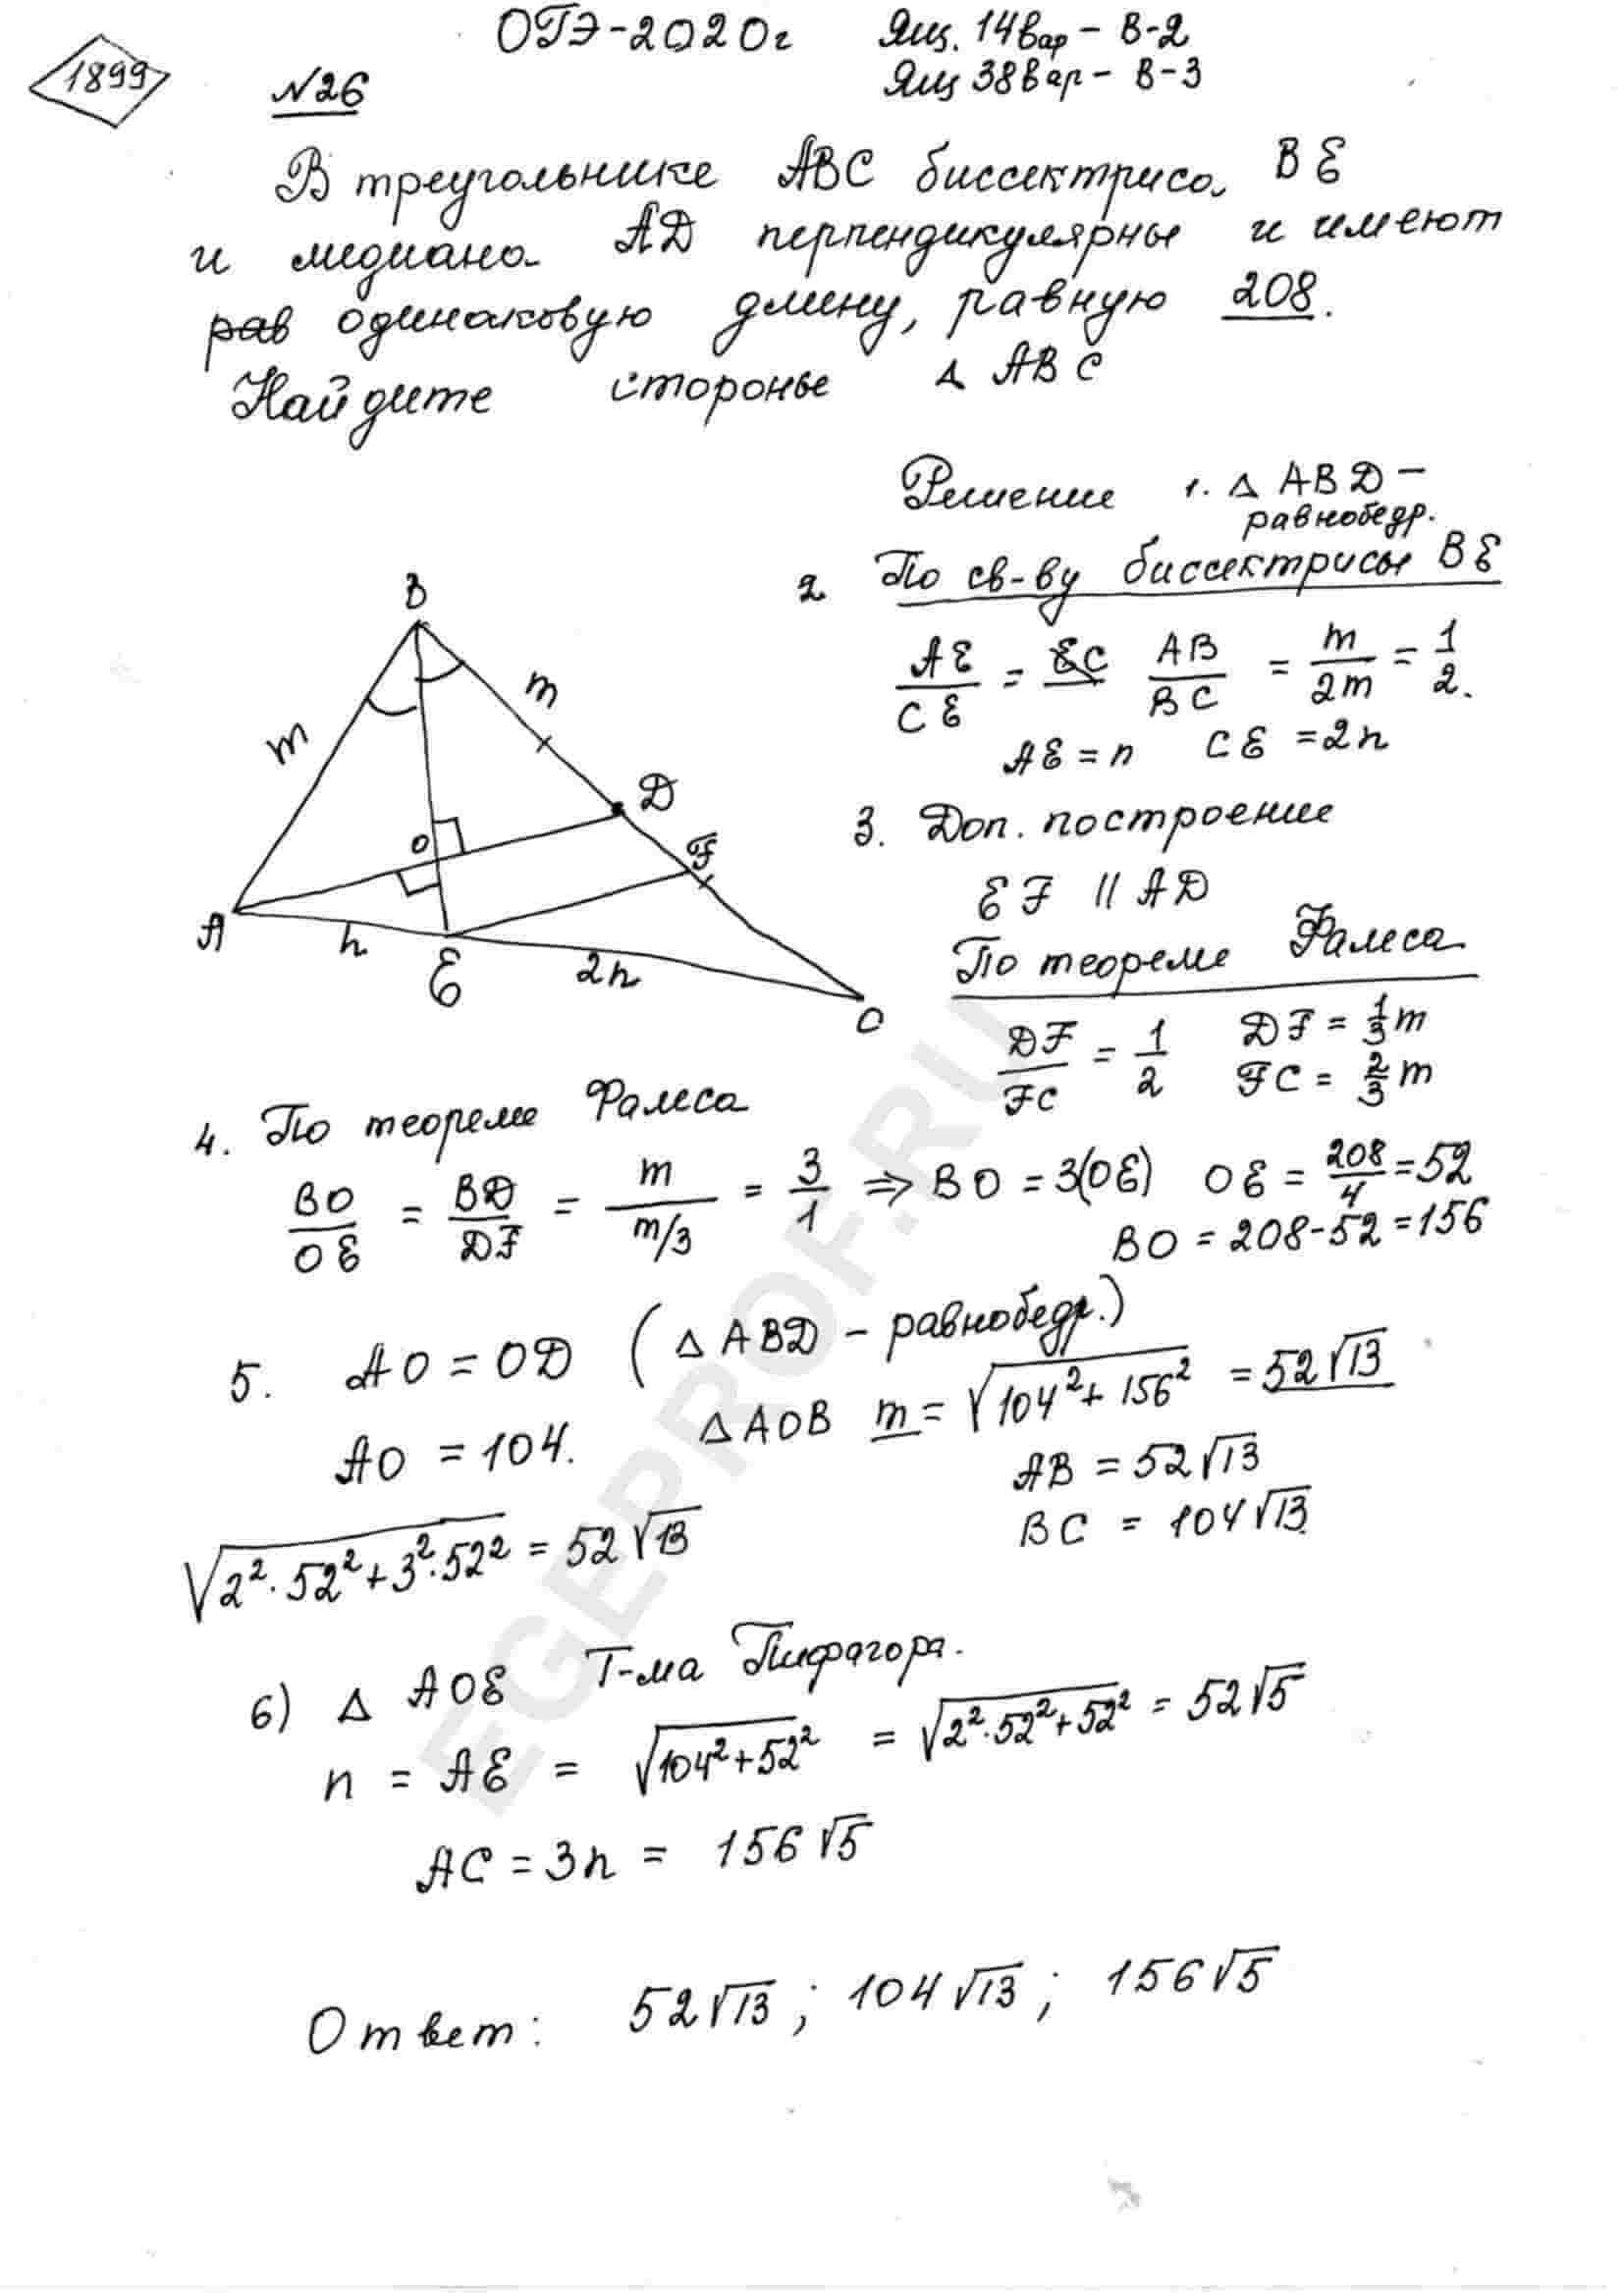 1899
ОГЭ-2020г
Ящ. 14вар - В-2
Ящ 38вар - В-3
№26
В треугольнике АВС биссектриса ВЕ
и медиана АD перпендикулярны и имеют
рав одинаковую длину, равную 208.
Найдите стороны Δ АВС
Решение 1. Δ АВD - равнобедр.
2 По св-ву биссектрисы ВЕ
AE/CE = EC AB/BC = m/2m = 1/2.
AE = n CE = 2n
B
m
m
D
O
F
A
n
E
2n
C
3. Доп. построение
EF || AD
По теореме Фалеса
DF/FC = 1/2 DF = 1/3 m
FC = 2/3 m
4. По теореме Фалеса
BO/OE = BD/DF = m/(m/3) = 3/1 => BO = 3(OE) OE = 208/4 = 52
BO = 208-52 = 156
5. AO = OD (Δ ABD - равнобедр.)
AO = 104. Δ AOB m = √(104² + 156²) = 52√13
AB = 52√13
BC = 104√13
√(2²·52² + 3²·52²) = 52√13
6) Δ AOE Т-ма Пифагора.
n = AE = √(104² + 52²) = √(2²·52² + 52²) = 52√5
AC = 3n = 156√5
Ответ: 52√13; 104√13; 156√5
EGEPROF.RU